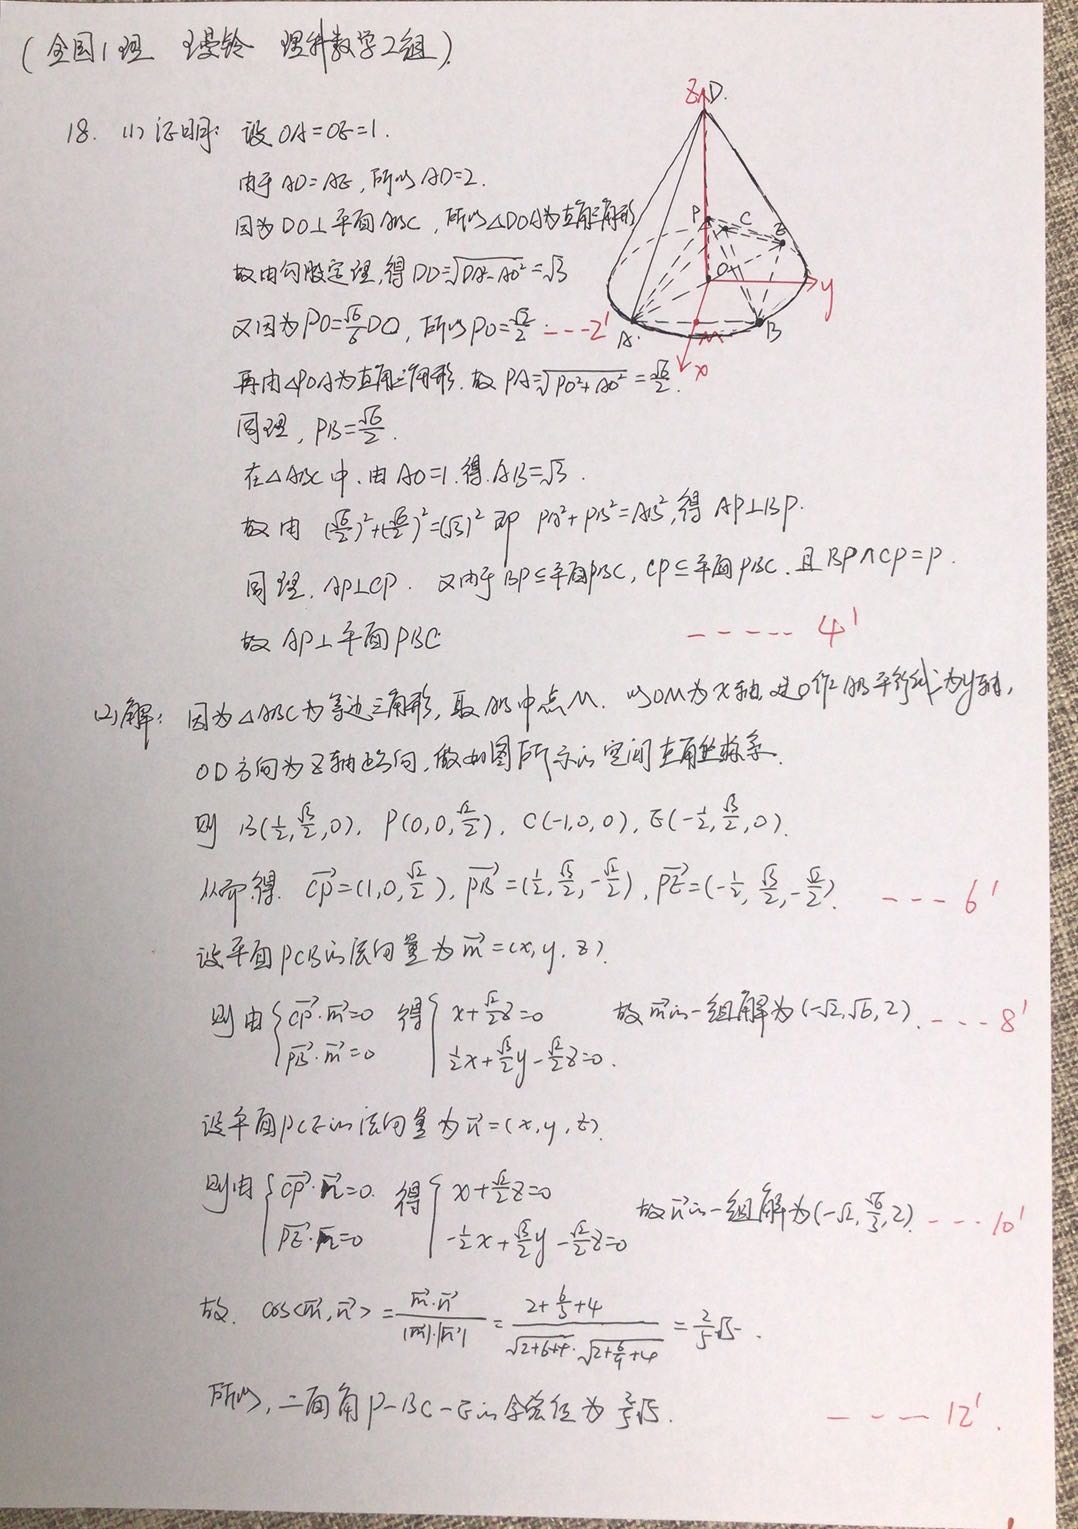 (全国1理 王曼铃 理科数学2组).
18. (1) 证明: 设 OA=OE=1.
由于 AD=AE, 所以 AD=2.
因为 DO⊥平面ABC, 所以△DOA为直角三角形
故由勾股定理,得 DO=√(DA²-AO²)=√3
又因为 PO=(√6/6)DO, 所以 PO=√2/2 ---2'
再由△POA为直角三角形. 故 PA=√(PO²+AO²)=√6/2.
同理, PB=√6/2.
在△ABC中, 由 AO=1. 得. AB=√3.
故由 (√6/2)²+(√6/2)²=(√3)² 即 PA²+PB²=AB², 得 AP⊥BP.
同理, AP⊥CP. 又由于 BP⊆平面PBC, CP⊆平面PBC. 且 BP∩CP=P.
故 AP⊥平面PBC ----- 4'
Z D.
P C E
O y
A. M B
x
(2)解: 因为△ABC为等边三角形, 取AB中点M. 以OM为x轴, 过O作AB平行线为y轴,
OD方向为Z轴正方向, 做如图所示的空间直角坐标系.
则 B(1/2, √3/2, 0), P(0, 0, √2/2), C(-1, 0, 0), E(-1/2, √3/2, 0).
从而得. CP→=(1, 0, √2/2), PB→=(1/2, √3/2, -√2/2), PE→=(-1/2, √3/2, -√2/2). --- 6'
设平面PCB的法向量为 m→=(x, y, z).
则由 { CP→·m→=0 得 { x+(√2/2)z=0 故m→的一组解为(-√2, √6, 2). --- 8'
PB→·m→=0 (1/2)x+(√3/2)y-(√2/2)z=0.
设平面PCE的法向量为n→=(x, y, z).
则由 { CP→·n→=0. 得 { x+(√2/2)z=0 故n→的一组解为(-√2, √6/3, 2). --- 10'
PE→·n→=0 -(1/2)x+(√3/2)y-(√2/2)z=0
故. cos<m→, n→>=(m→·n→)/(|m→|·|n→|)=(2+6/3+4)/(√(2+6+4)·√(2+6/9+4))=(2/5)√5.
所以, 二面角P-BC-E的余弦值为(2/5)√5. --- 12'